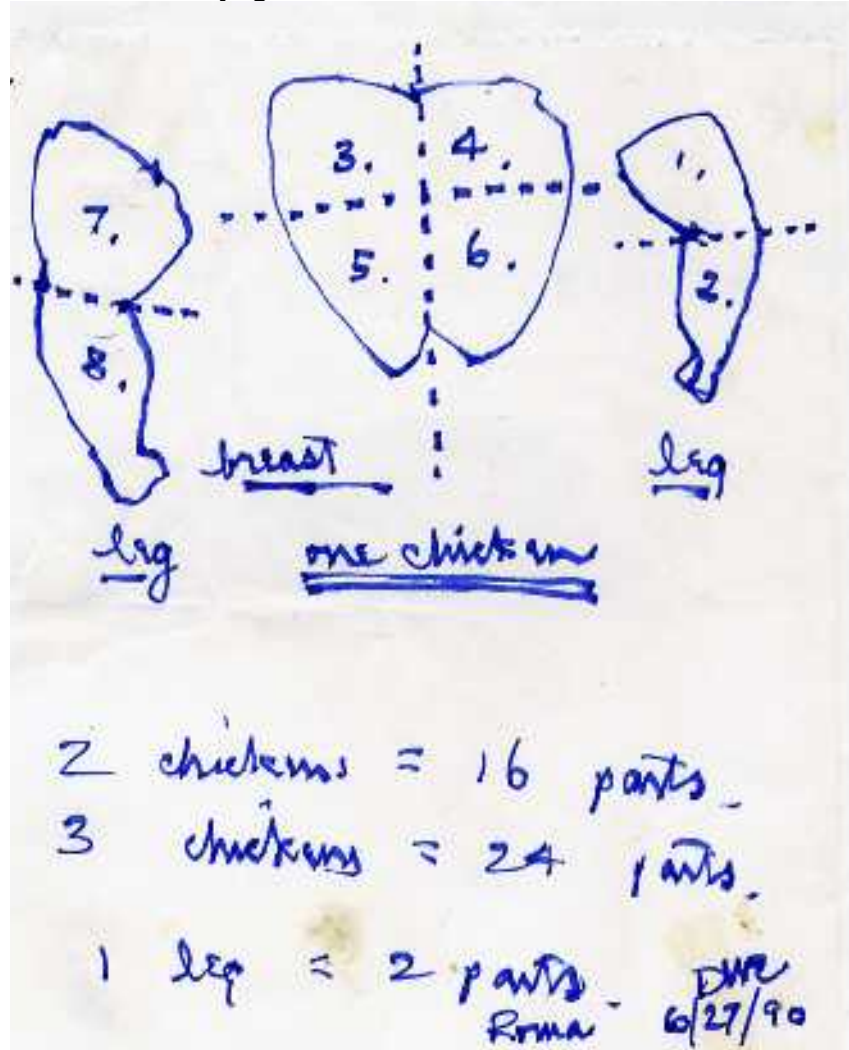 3. 4. 1.
7.
5. 6. 2.
8.
breast leg
leg one chicken
2 chickens = 16 parts.
3 chickens = 24 parts.
1 leg = 2 parts.
Roma 6/27/90